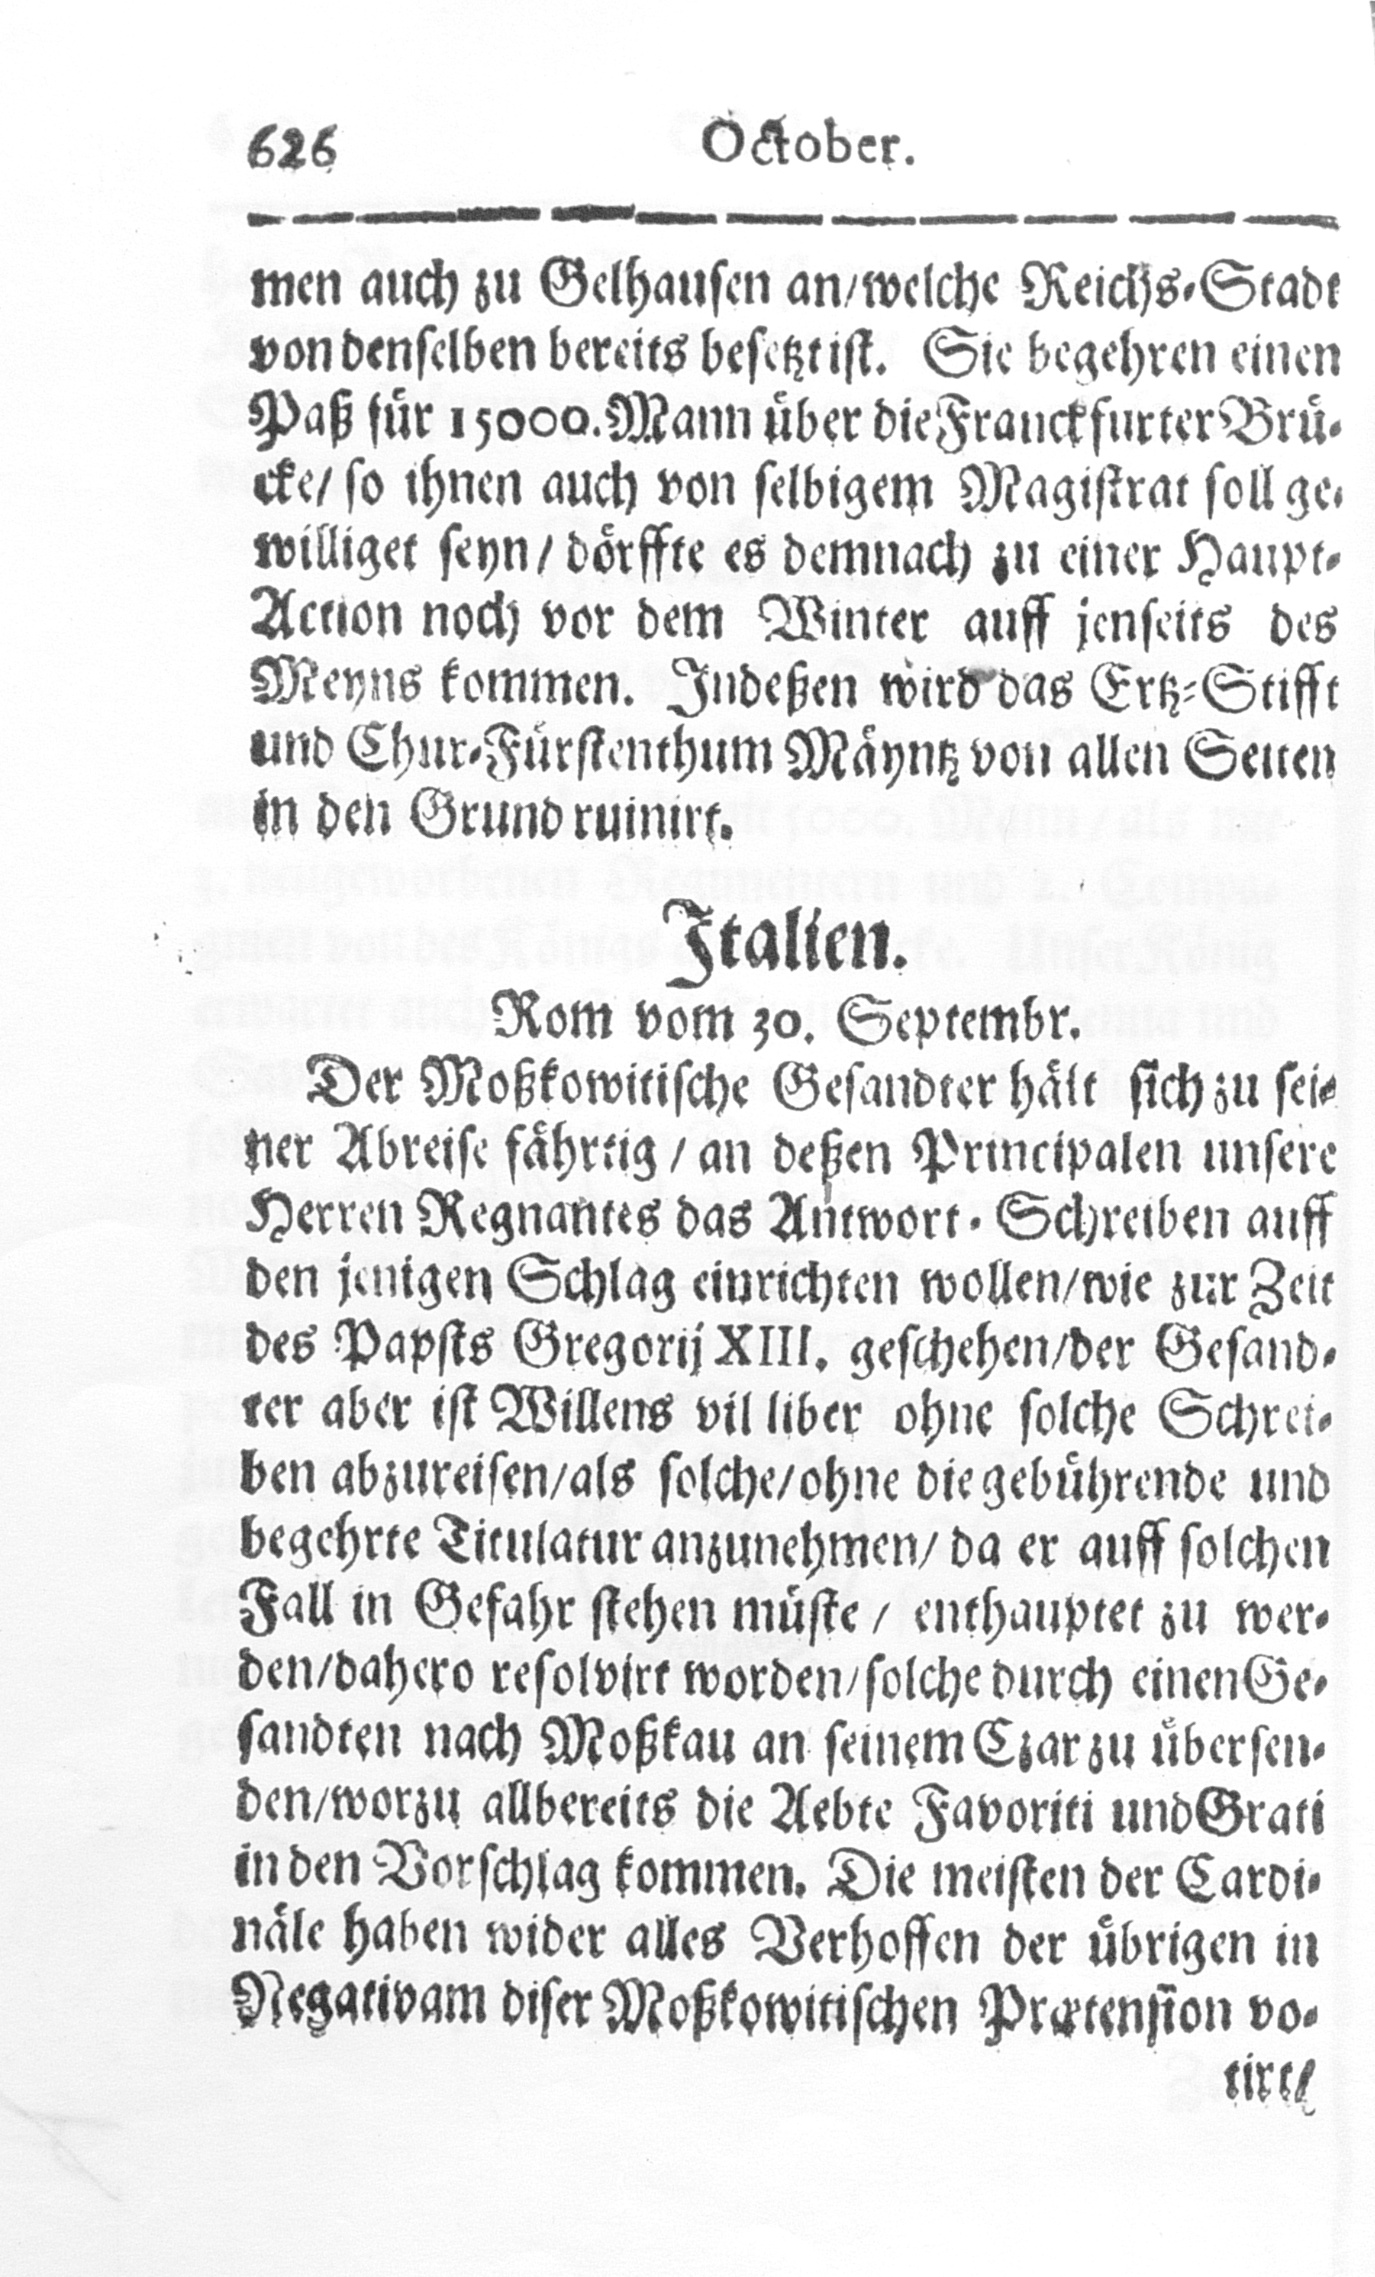 626 October.
men auch zu Gelhausen an/welche Reichs-Stadt
von denselben bereits besetzt ist. Sie begehren einen
Paß für 15000. Mann über die Franckfurter Brü-
cke/ so ihnen auch von selbigem Magistrat soll ge-
williget seyn/ dörffte es demnach zu einer Haupt-
Action noch vor dem Winter auff jenseits des
Meyns kommen. Indeßen wird das Ertz-Stifft
und Chur-Fürstenthum Mäyntz von allen Seiten
in den Grund ruinirt.
Italien.
Rom vom 30. Septembr.
Der Moßkowitische Gesandter hält sich zu sei-
ner Abreise fährtig / an deßen Principalen unsere
Herren Regnantes das Antwort-Schreiben auff
den jenigen Schlag einrichten wollen/wie zur Zeit
des Papsts Gregorij XIII. geschehen/der Gesand-
ter aber ist Willens vil liber ohne solche Schrei-
ben abzureisen/als solche/ohne die gebührende und
begehrte Titulatur anzunehmen/ da er auff solchen
Fall in Gefahr stehen müste / enthauptet zu wer-
den/dahero resolvirt worden/solche durch einen Ge-
sandten nach Moßkau an seinem Czar zu übersen-
den/worzu allbereits die Aebte Favoriti und Grati
in den Vorschlag kommen. Die meisten der Cardi-
näle haben wider alles Verhoffen der übrigen in
Negativam diser Moßkowitischen Prætension vo-
tirt/